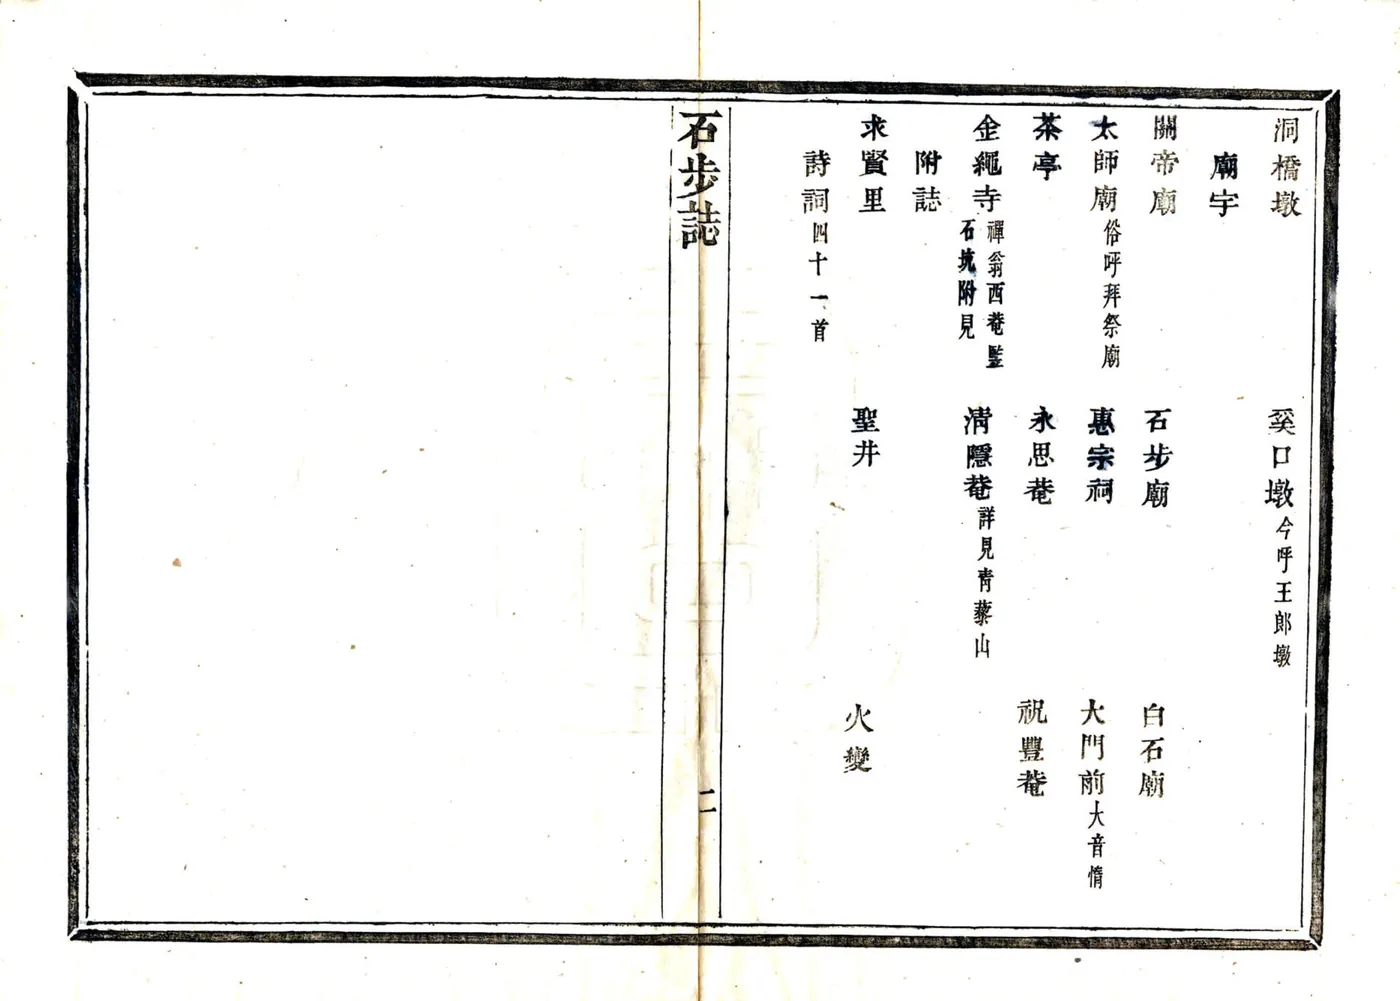 洞橋墩　奚口墩今呼王郎墩
廟宇
關帝廟　石步廟　白石廟
太師廟俗呼拜祭廟　惠宗祠　大門前大音惰
茶亭　永思菴　祝豐菴
金繩寺禪翁西菴監石坑附見　清隱菴詳見青藜山
附誌
求賢里　聖井　火變
詩詞四十一首
石步誌　二